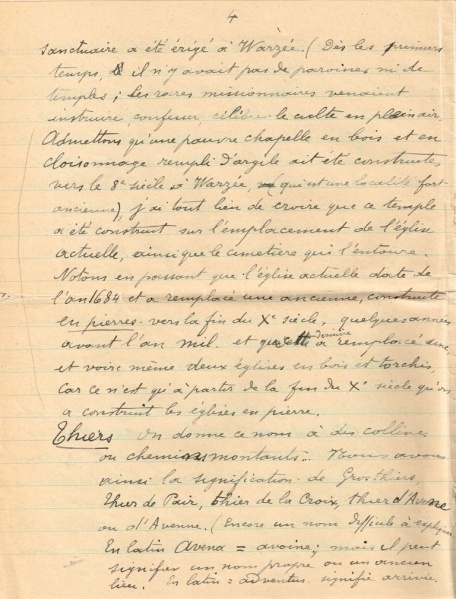 4
sanctuaire a été érigé à Warzée. (Dès les premiers
temps, il n'y avait pas de paroisses ni de
temples ; les rares missionnaires venaient
instruire, confesser, célébrer le culte en plein air.
Admettons qu'une pauvre chapelle en bois et en
cloisonnage rempli d'argile ait été construite,
vers le 8e siècle à Warzée, (qui est une localité fort
ancienne), j'ai tout lieu de croire que ce temple
a été construit sur l'emplacement de l'église
actuelle, ainsi que le cimetière qui l'entoure.
Notons en passant que l'église actuelle date de
l'an 1684 et a remplacé une ancienne, construite
en pierres vers la fin du Xe siècle, quelques années
avant l'an mil. et que cette dernière a remplacé une
et voire même deux églises en bois et torchis,
car ce n'est qu'à partir de la fin du Xe siècle qu'on
a construit les églises en pierre.
Thiers On donne ce nom à des collines
ou chemins montants. Nous avons
ainsi la signification de Gros thiers,
thier de Pair, thier de la Croix, thier d'Avene
ou d'Avenne. (Encore un nom difficile à expliquer
En latin Avena = avoine ; mais il peut
signifier un nom propre ou un ancien
lieu. En latin = adventus signifie arrivée.